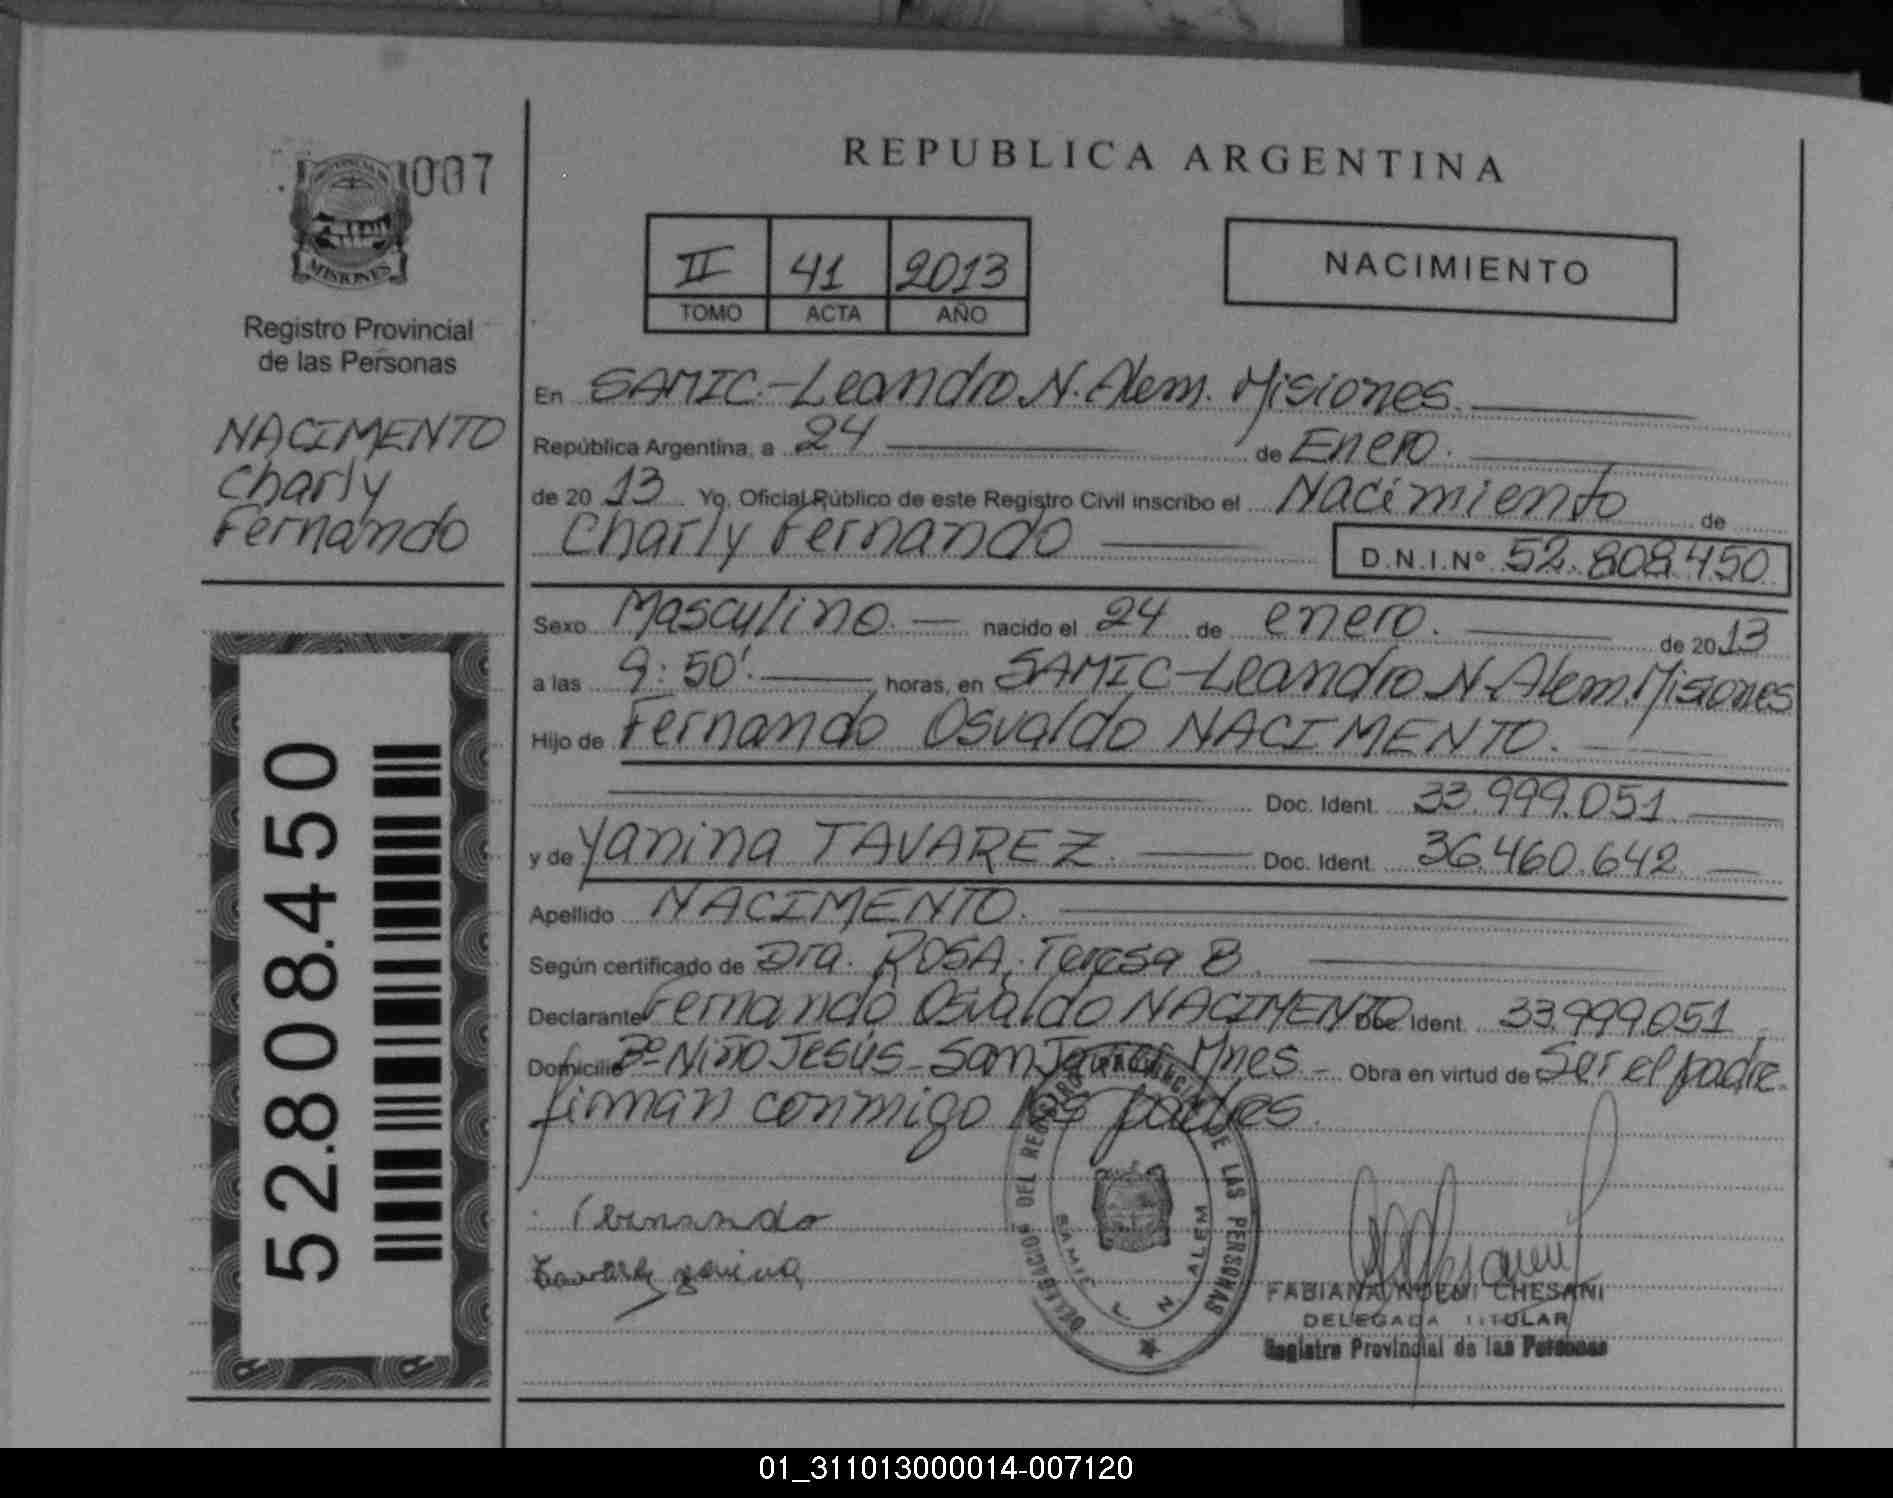 1007
MISIONES
Registro Provincial
de las Personas
NACIMENTO
Charly
Fernando
52.808.450
REPUBLICA ARGENTINA
II 41 2013
TOMO ACTA AÑO
NACIMIENTO
En SAMIC.-Leandro N. Alem. Misiones.
República Argentina, a 24 de Enero.
de 20 13 Yo, Oficial Público de este Registro Civil inscribo el Nacimiento de
Charly Fernando D.N.I.Nº 52.808.450
Sexo Masculino. nacido el 24 de enero. de 20 13
a las 9:50'. horas, en SAMIC-Leandro N. Alem. Misiones
Hijo de Fernando Osvaldo NACIMENTO.
Doc. Ident. 33.999.051
y de Yanina TAVAREZ. Doc. Ident. 36.460.642
Apellido NACIMENTO.
Según certificado de Dra. ROSA, Teresa B.
Declarante Fernando Osvaldo NACIMENTO Doc. Ident. 33.999.051
Domicilio Bº Niño Jesús - San Javier Mnes - Obra en virtud de Ser el padre.
firman conmigo los padres.
Fernando
Tavarez yanina
DELEGACION DEL REGISTRO PROVINCIAL DE LAS PERSONAS
SAMIC L N ALEM
FABIANA NOEMI CHESANI
DELEGADA TITULAR
Registro Provincial de las Personas
01_311013000014-007120